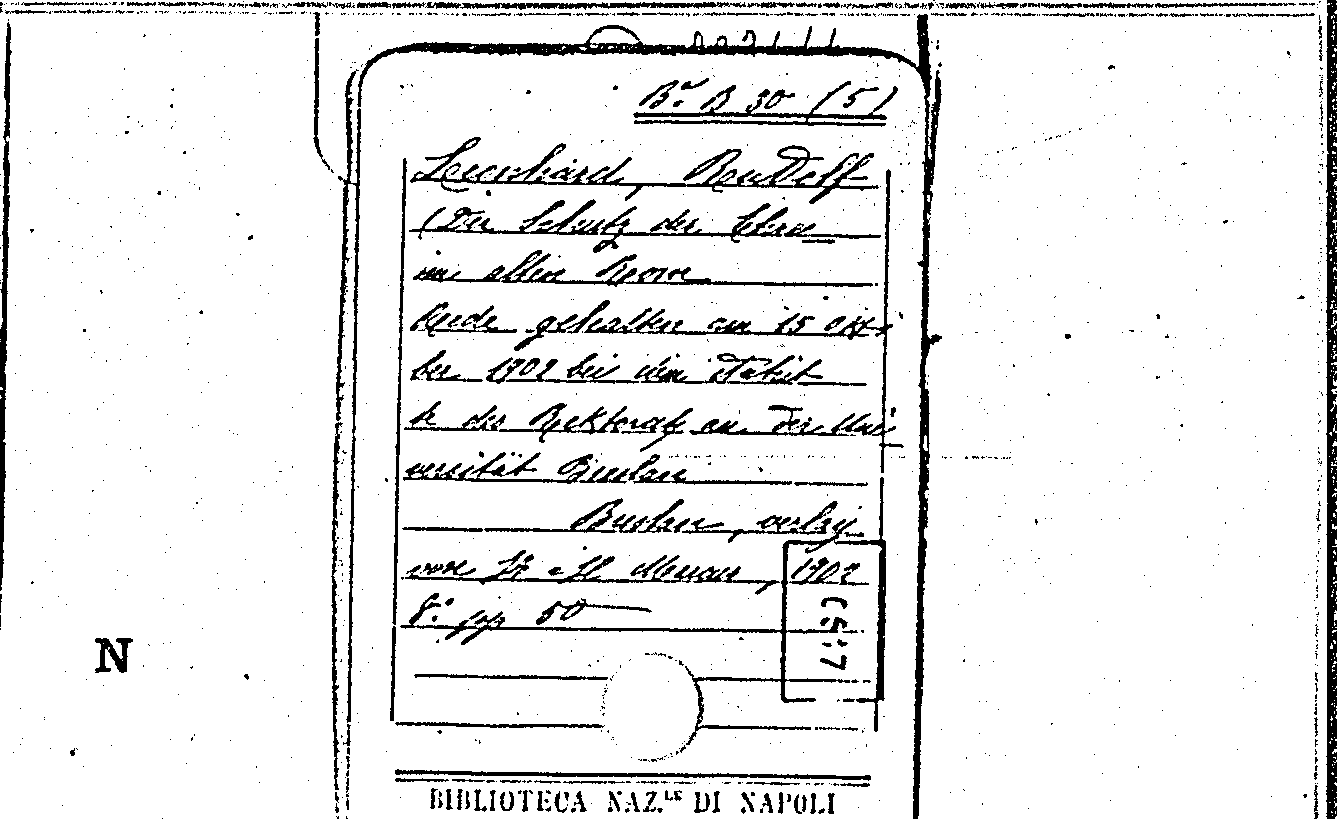 Bª. B 30 (5)
Leonhard, Rudolf
(Der Schutz der Ehre
im alten Rom
Rede gehalten am 15 Okto
ber 1902 bei dem Antrit
te des Rektorats an der Uni
versität Breslau
Breslau, verlag
von M. & H. Marcus, 1902
8.º pp 50
N
BIBLIOTECA NAZ.LE DI NAPOLI